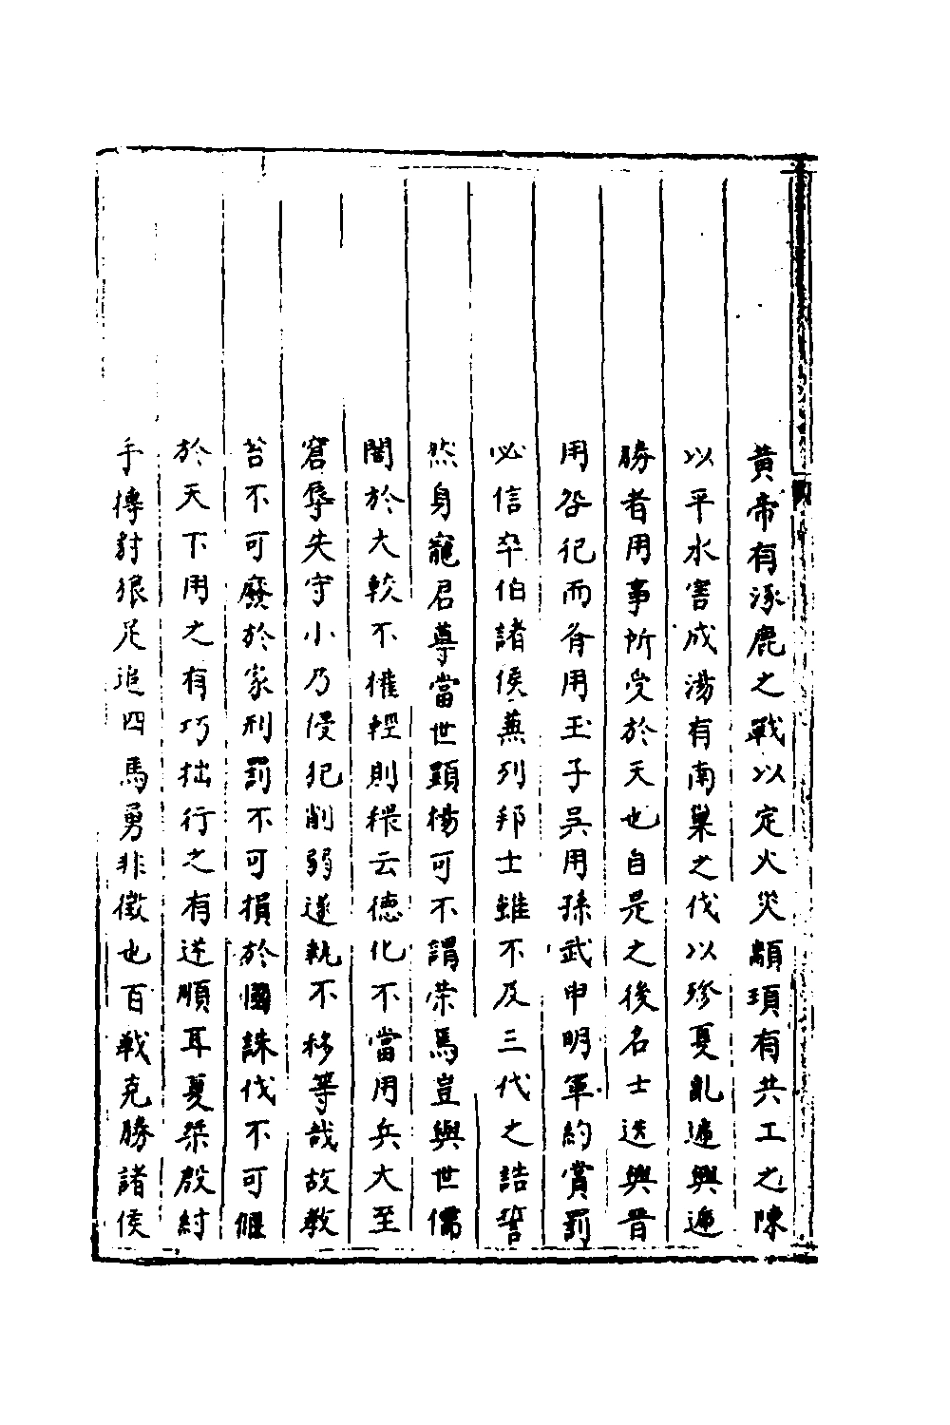 黃帝有涿鹿之戰以定火災顓頊有共工之陳
以平水害成湯有南巢之伐以殄夏亂遞興遞
勝者用事所受於天也自是之後名士迭興昔
用咎犯而齊用王子吳用孫武申明軍約賞罰
必信卒伯諸侯蕪列邦士雖不及三代之誥誓
然身寵君尊當世顯楊可不謂荣焉豈與世儒
闇於大較不權輕則稱云德化不當用兵大至
窘辱失守小乃侵犯削弱遂執不移等哉故教
笞不可廢於家刑罰不可損於國誅伐不可偃
於天下用之有巧拙行之有逆順耳夏桀殷紂
手摶豺狼足追四馬勇非微也百戰克勝諸侯